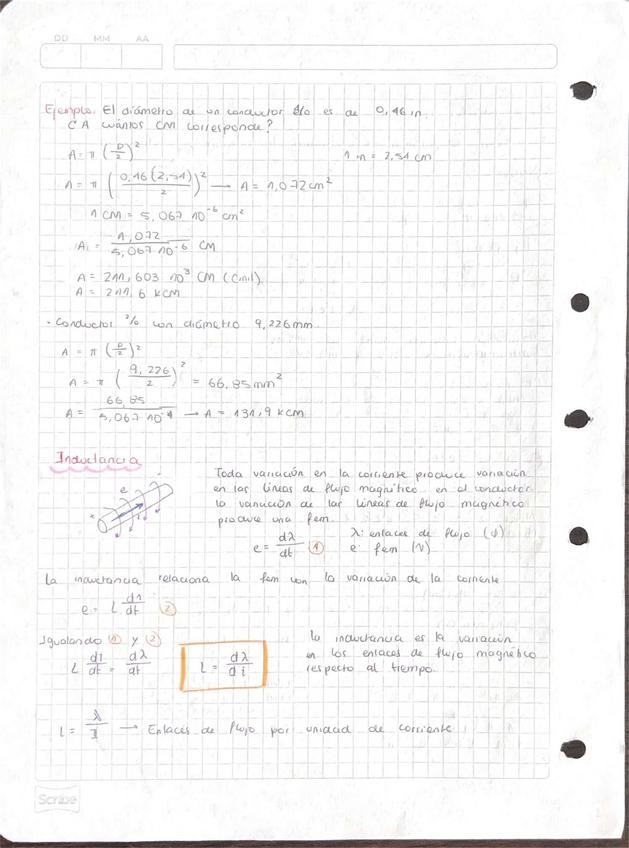 DD MM AA
Ejemplo. El diámetro de un conductor 4/0 es de 0,46 in.
¿A cuántos CM corresponde?
A = π (D/2)² 1 in = 2,54 cm
A = π (0,46(2,54)/2)² → A = 1,072 cm²
1 CM = 5,067 10⁻⁶ cm²
A = 1,072 / 5,067 10⁻⁶ CM
A = 211,603 10³ CM (Cmil)
A = 211,6 kCM
· Conductor 2/0 con diámetro 9,226 mm.
A = π (D/2)²
A = π (9,226/2)² = 66,85 mm²
A = 66,85 / 5,067 10⁻⁴ → A = 131,9 kCM
Inductancia
Toda variación en la corriente produce variación
en las líneas de flujo magnético en el conductor
la variación de las líneas de flujo magnético
produce una fem.
e = dλ/dt ① λ: enlaces de flujo (ψ)
e: fem (V)
La inductancia relaciona la fem con la variación de la corriente
e = L dI/dt ②
Igualando ① y ②
L dI/dt = dλ/dt
L = dλ/di
la inductancia es la variación
en los enlaces de flujo magnético
respecto al tiempo.
L = λ/I → Enlaces de flujo por unidad de corriente
Scribe